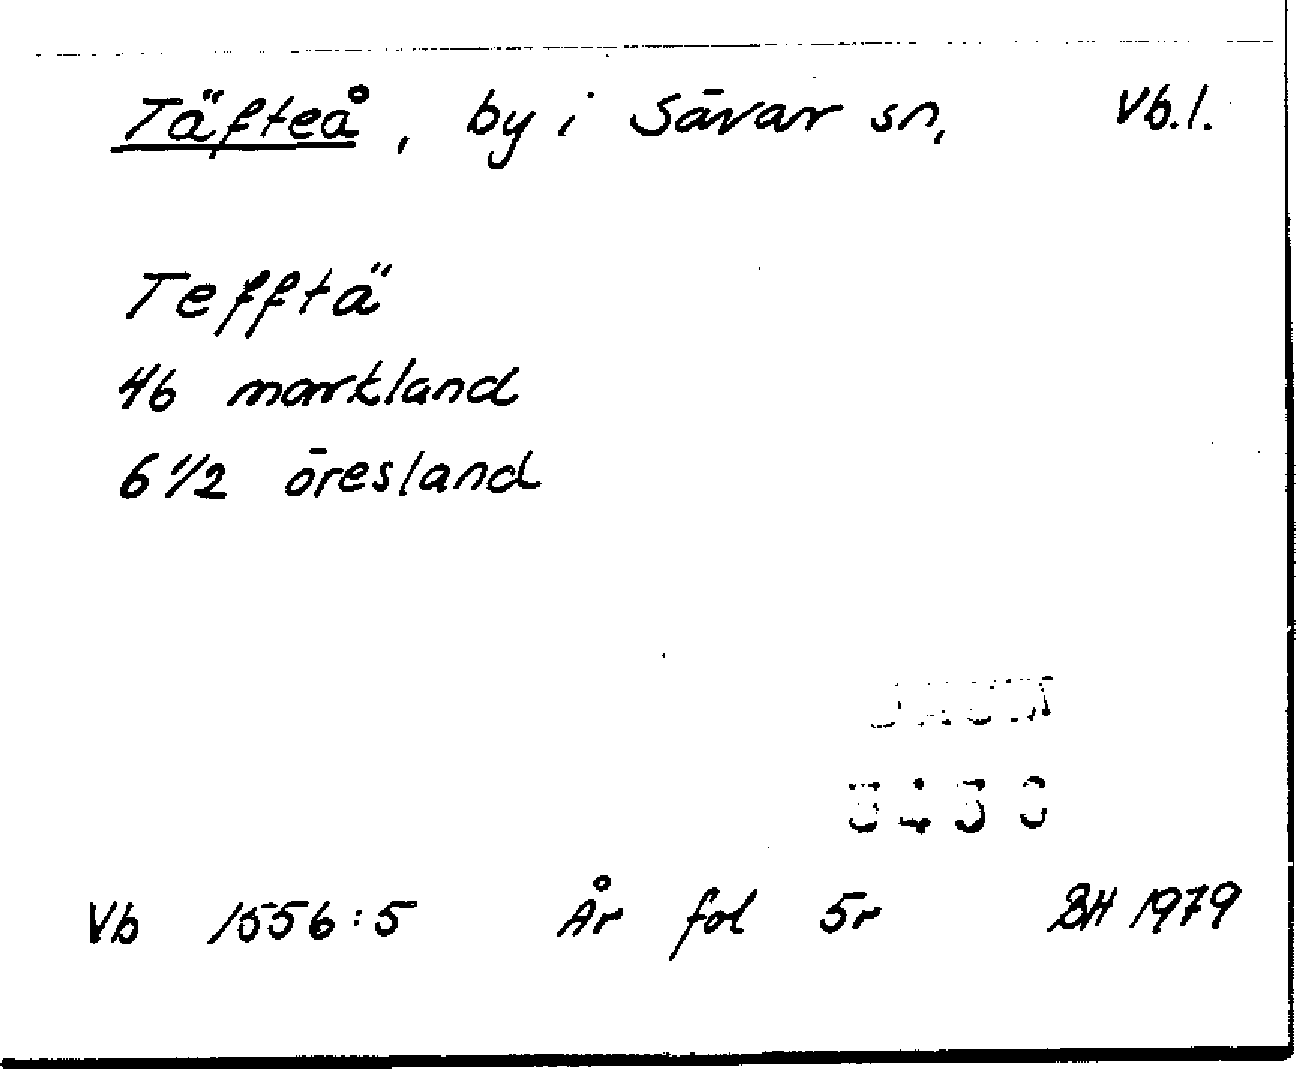 Täfteå, by i Sävar sn, Vb.l.
Tefftä
46 markland
6 1/2 öresland
Vb 1556:5 År fol 5r BH 1979